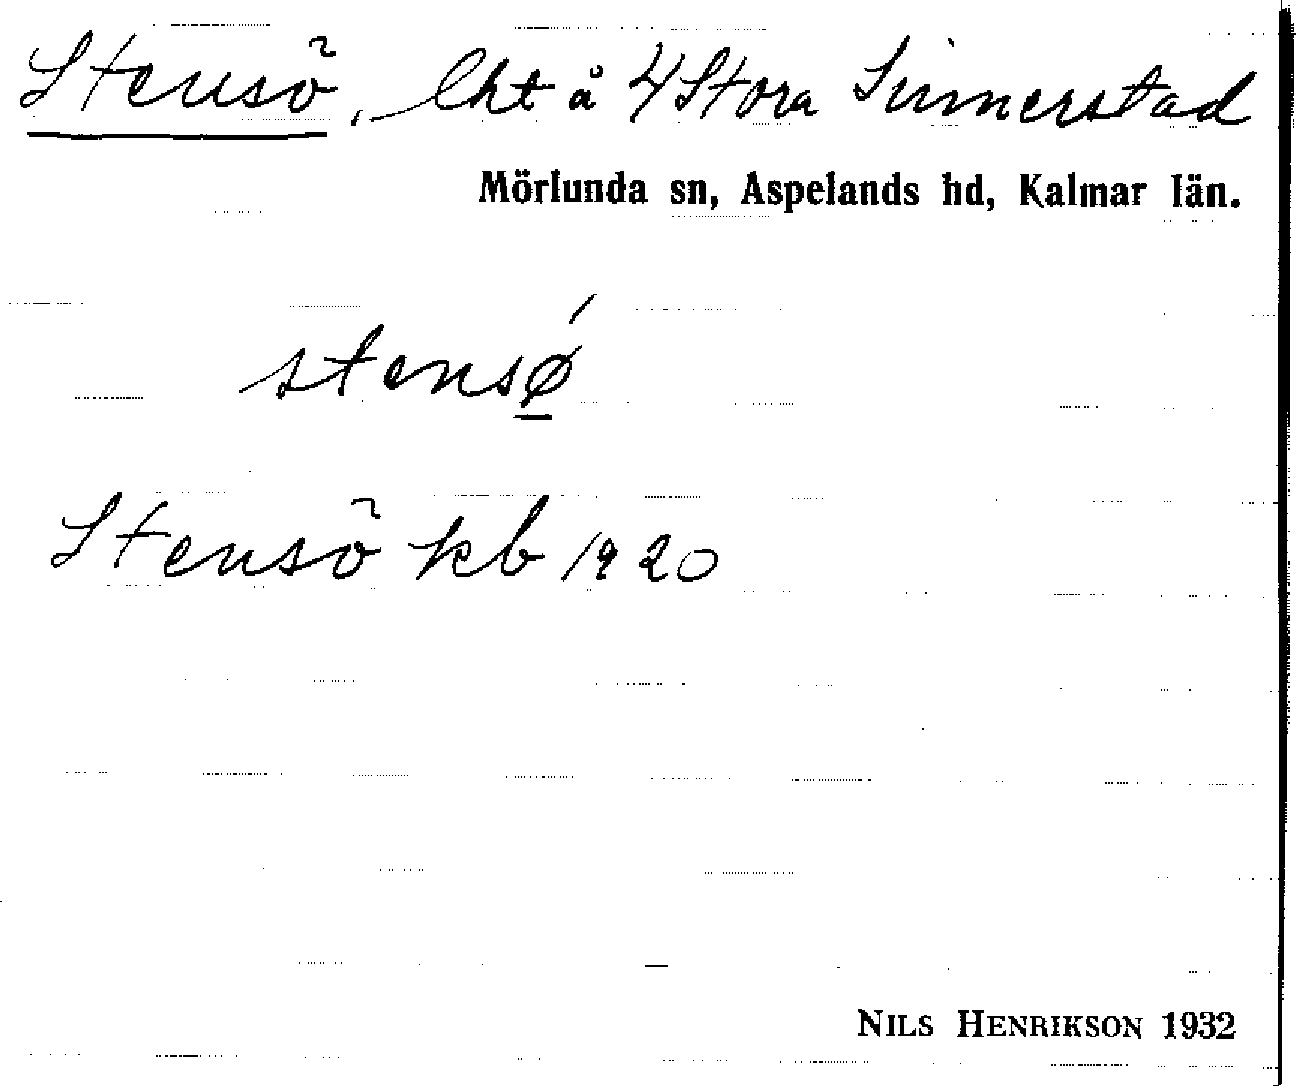 Stensö, lht å 4 Stora Simmerstad
Mörlunda sn, Aspelands hd, Kalmar län.
stensǿ̲
Stensö kb 1920
NILS HENRIKSON 1932